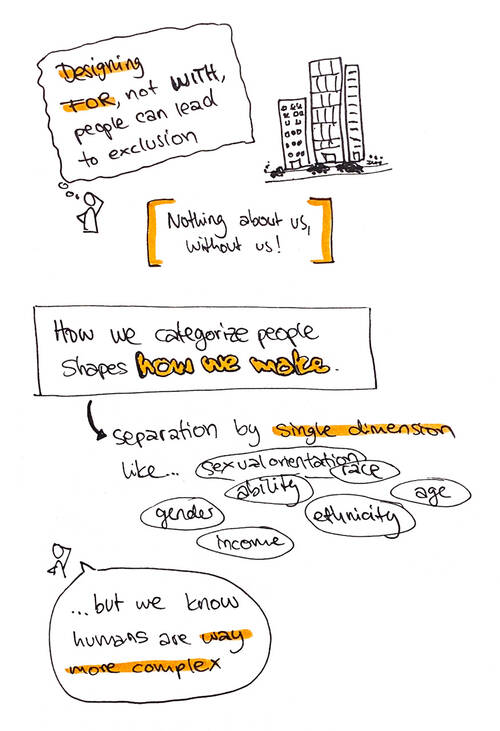 Designing
FOR, not WITH,
people can lead
to exclusion
Nothing about us,
without us!
How we categorize people
shapes how we make.
separation by single dimension
like... sexual orientation
race
ability
age
gender
ethnicity
income
...but we know
humans are way
more complex